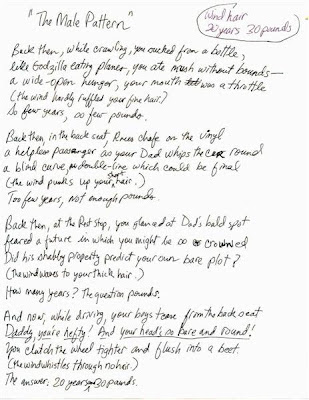 "The Male Pattern"
Wind hair
20 years 30 pounds
Back then, while crawling, you sucked from a bottle,
like Godzilla eating planes, you ate mush without bounds—
a wide-open hunger, your mouth was a throttle
(the wind hardly ruffled your fine hair.)
So few years, so few pounds.
Back then, in the back seat, knees chafe on the vinyl
a helpless passenger as your Dad whips the car round
a blind curve, double-line which could be final
(the wind punks up your short hair.)
Too few years, not enough pounds.
Back then, at the Rest stop, you glanced at Dad's bald spot
feared a future in which you might be so crowned
Did his shabby property predict your own bare plot?
(The wind waves to your thick hair.)
How many years? The question pounds.
And now, while driving, your boys tease from the back seat
Daddy, you're hefty! And your head's so bare and round!
You clutch the wheel tighter and flush into a beet.
(the wind whistles through no hair.)
The answer: 20 years, 30 pounds.